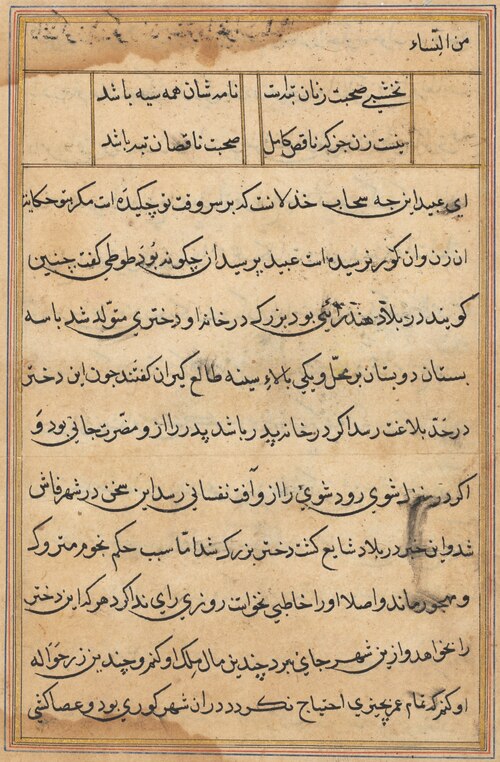 من النساء
نخشبی صحبت زنان تبه است نامه شان همه سیه باشد
نیست زن جز که ناقص کامل صحبت ناقصان تبه باشد
ای عبید این چه سحاب خذلانست که بر سر وقت تو چکیده است مکر بتو حکایت
ان زن وان کور نرسیده است عبید پرسید ان چکونه بود طوطی کفت چنین
کویند در بلاد هند رائی بود بزرک در خانه او دختری متولد شد با سه
بستان دو بستان بر محل و یکی بالاء سینه طالع کیران کفتند چون این دختر
در حد بلاغت رسد اکر در خانه پدر باشد پدر را از و مضرت جانی بود و
اکر در منزل شوی رود شوی را از و آفت نفسانی رسد این سخن در شهر فاش
شد و این خبر در بلاد شایع کشت دختر بزرک شد اما سبب حکم نجوم متروک
و مهجور ماند و اصلا او را خاطبی نخواست روزی رای ندا کرد هر که این دختر
را بخواهد و ازین شهر جای ببرد چندین مال ملک او کنم و چندین زر حواله
او کنم که تمام عمر بچیزی احتیاج نکردد در ان شهر کوری بود و عصا کشی